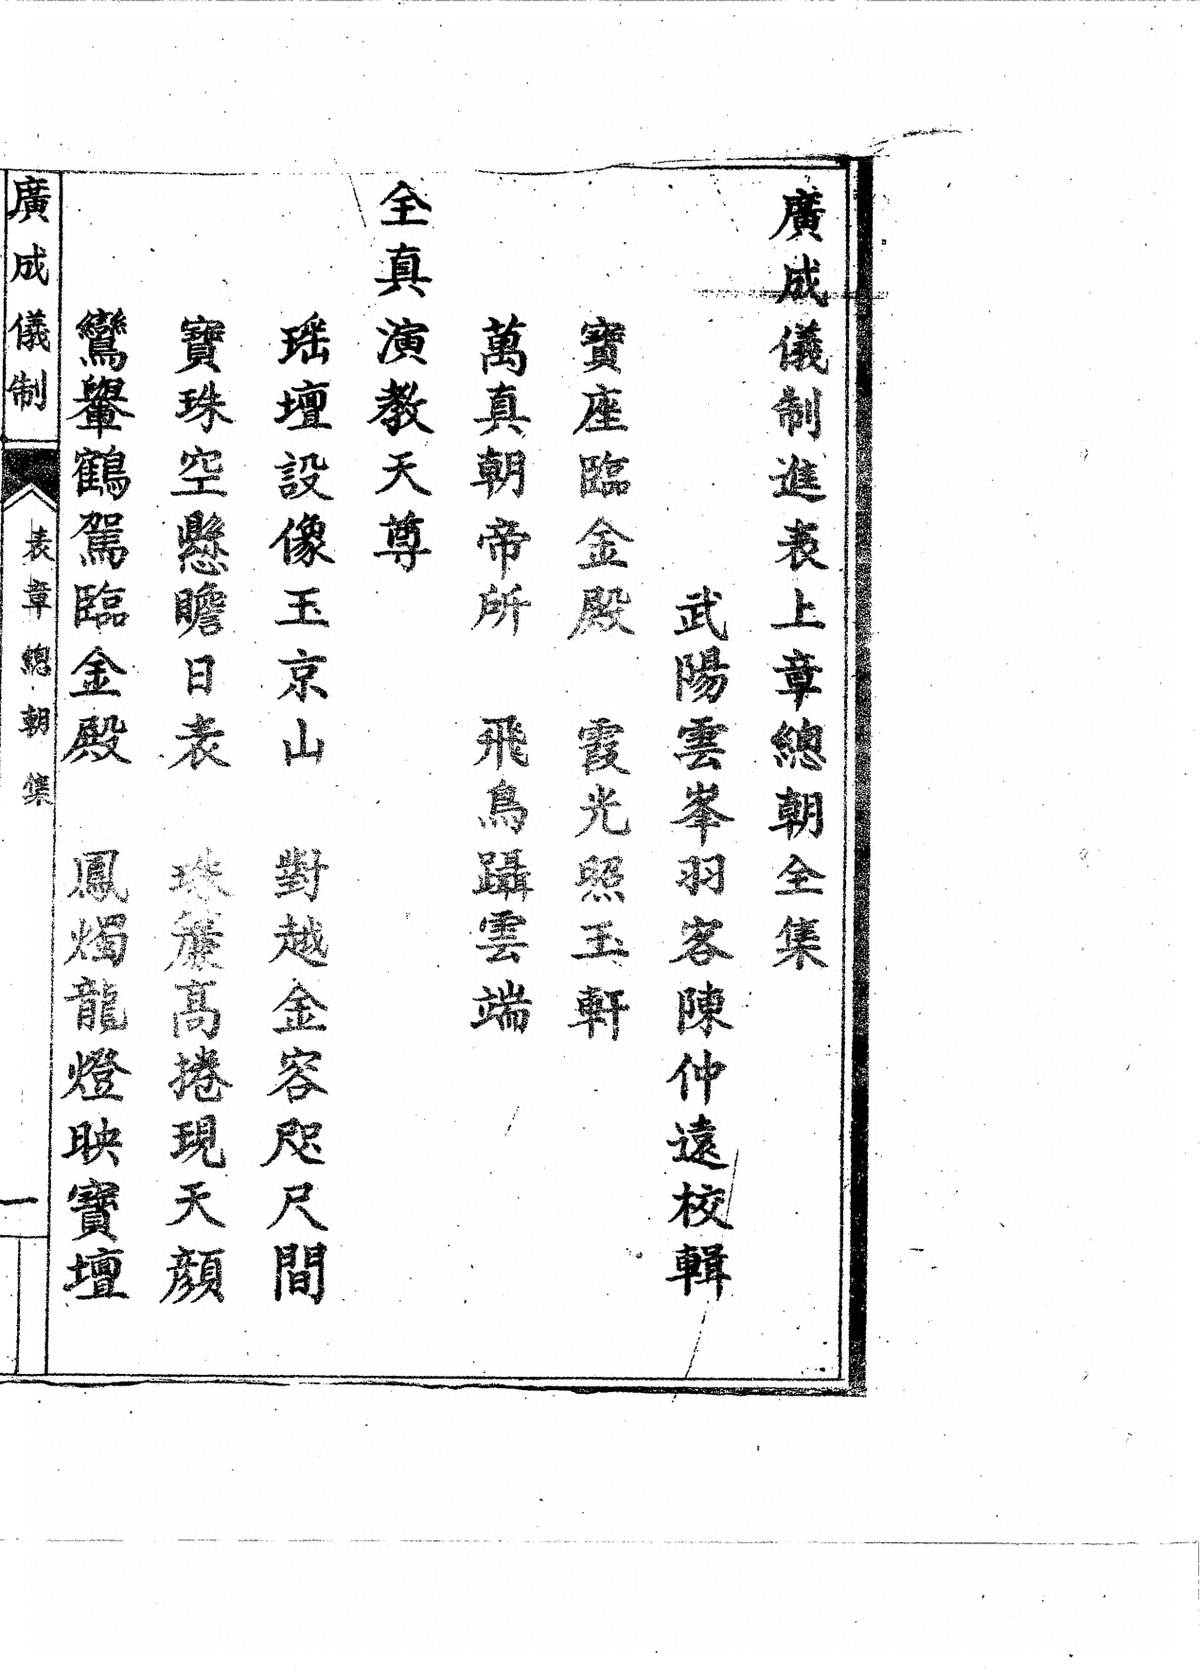 廣成儀制進表上章總朝全集
武陽雲峯羽客陳仲遠校輯
寶座臨金殿　霞光照玉軒
萬真朝帝所　飛鳥躡雲端
全真演教天尊
瑶壇設像玉京山　對越金容咫尺間
寶珠空懸瞻日表　珠簾高捲現天顏
鸞轝鶴駕臨金殿　鳳燭龍燈映寶壇
廣成儀制
表章總朝集
一